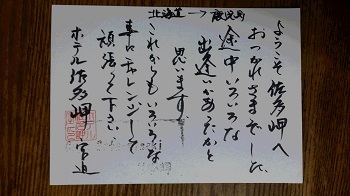 北海道→鹿児島
ようこそ佐多岬へ
おつかれさまでした、
途中いろいろな
出逢いがあったかと
思います
これからもいろいろな
事にチャレンジして
頑張って下さい
ホテル佐多岬